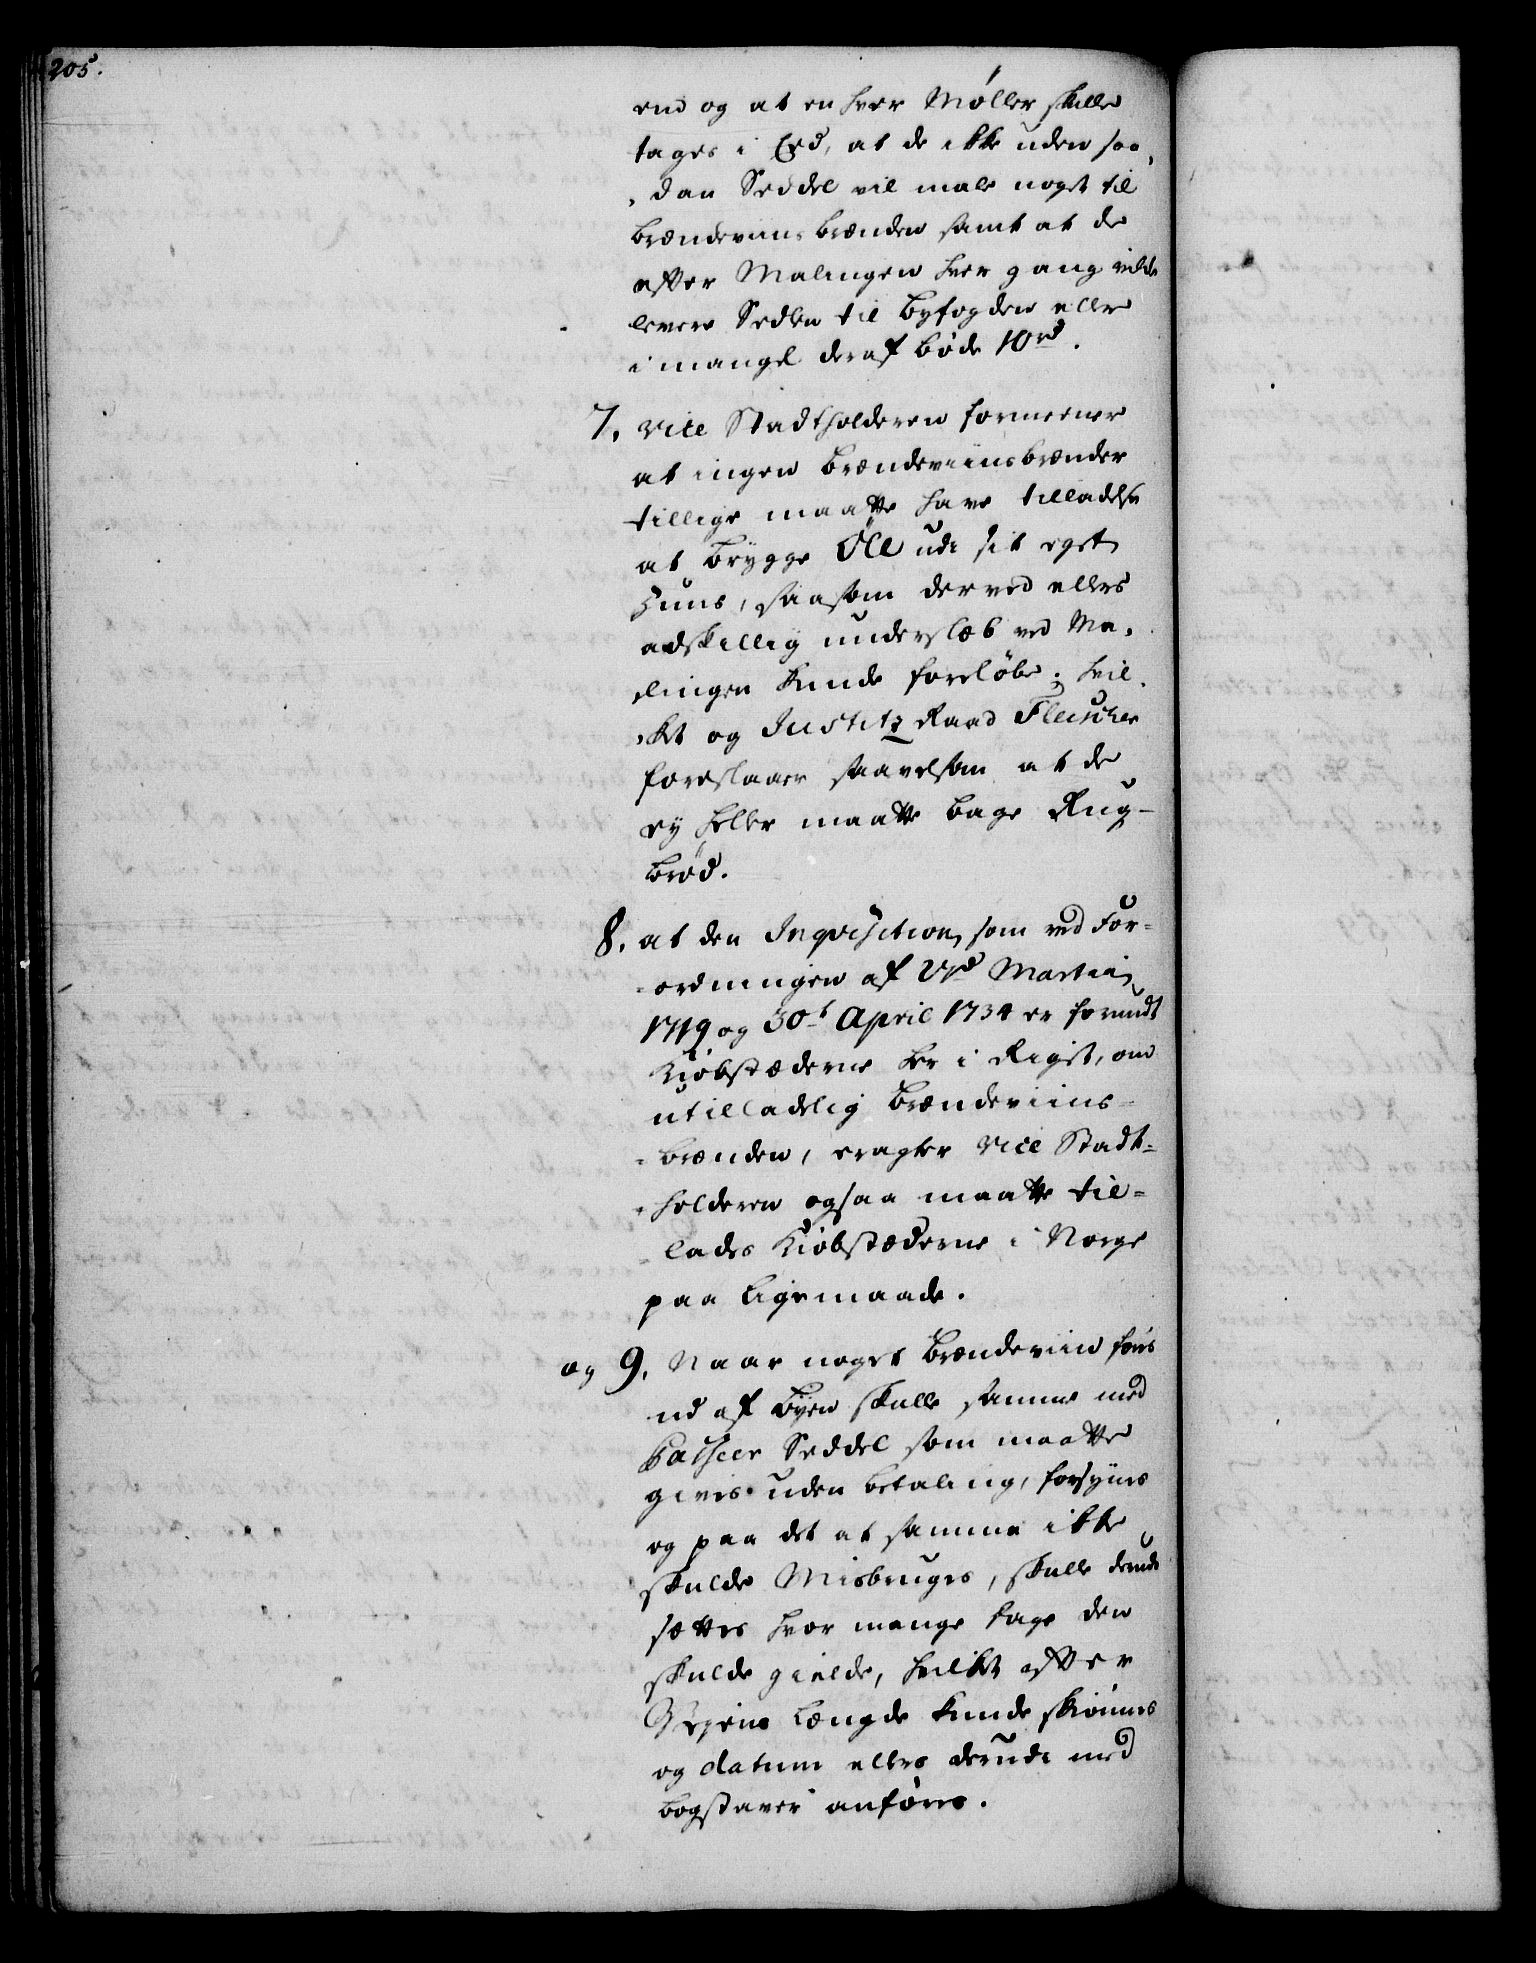 205.
end og at en hver Møller skulle
tages i Eed, at de ikke uden saa,
,dan Seddel vil male noget til
brændeviins brænden samt at de
efter Malingen hver gang vilde
levere Sedlen til byfogden eller
i mangel deraf bøde 10rd.
7, Vice Stadtholderen formeener
at ingen brændeviinsbrænder
tillige maatte have tilladelse
at brygge Øll udi sit eget
Huus, saasom derved ellers
adskillig underslæb ved Ma,
,lingen kunde foreløbe; hvil,
,ket og Justitz Raad Fleischer
foreslaaer saavelsom at de
ey heller maatte bage Rug-
brød.
8, at den Inqvisition, som ved For-
-ordningen af Martii
1719 og 30t April 1734 er forundt
Kiøbstæderne her i Riget, om
utilladelig brændeviins-
-brænden, eragter Vice Stadt-
-holderen ogsaa maatte til-
lades Kiøbstæderne i Norge
paa ligemaade.
og 9, Naar noget brændeviin føres
ud af byen skulle samme med
Passeer Seddel som maatte
gives uden betaling, forsynes
og paa det at samme ikke
skulde Misbruges, skulle derudi
sættes hvor mange dage den
skulde gielde, hvilket efter
Veyens Længde kunde skiønnes
og datum ellers derudi med
bogstaver anføres.